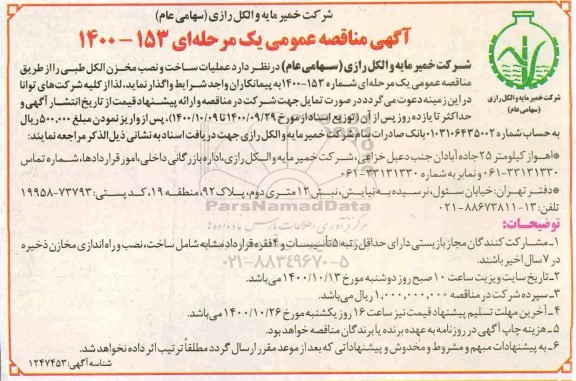 شرکت خمیر مایه و الکل رازی (سهامی عام)
آگهی مناقصه عمومی یک مرحله‌ای ۱۵۳ - ۱۴۰۰
شرکت خمیر مایه و الکل رازی
(سهامی عام)
شرکت خمیر مایه و الکل رازی (سهامی عام) در نظر دارد عملیات ساخت و نصب مخزن الکل طبی را از طریق
مناقصه عمومی یک مرحله‌ای شماره ۱۵۳-۱۴۰۰ به پیمانکاران واجد شرایط واگذار نماید، لذا از کلیه شرکت‌های توانا
در این زمینه دعوت می گردد در صورت تمایل جهت شرکت در مناقصه و ارائه پیشنهاد قیمت از تاریخ انتشار آگهی و
حداکثر تا یازده روز پس از آن (توزیع اسناد از مورخ ۱۴۰۰/۰۹/۲۹ تا ۱۴۰۰/۱۰/۰۹)، پس از واریز نمودن مبلغ ۵۰۰,۰۰۰ ریال
به حساب شماره ۰۱۰۳۱۰۶۴۳۵۰۰۲ بانک صادرات بنام شرکت خمیر مایه و الکل رازی جهت دریافت اسناد به نشانی ذیل الذکر مراجعه نمایند:
*اهواز کیلومتر ۲۵ جاده آبادان جنب دعبل خزاعی، شرکت خمیر مایه و الکل رازی، اداره بازرگانی داخلی، امور قراردادها، شماره تماس
۰۶۱-۳۳۱۳۱۳۳۰ و نمابر به شماره ۰۶۱-۳۳۱۳۱۳۳۰
*دفتر تهران: خیابان سئول، نرسیده به نیایش، نبش ۱۲ متری دوم، پلاک ۹۲، منطقه ۱۹، کد پستی: ۷۳۷۹۳-۱۹۹۵۸
تلفن: ۱۳-۸۸۶۷۳۸۱۱-۰۲۱
توضیحات:
ParsNamadData
۰۲۱-۸۸۳۴۹۶۷۰-۵
۱- مشارکت کنندگان مجاز بازیستی دارای حداقل رتبه ۵ تأسیسات و ۴ فقره قرارداد مشابه شامل ساخت، نصب و راه اندازی مخازن ذخیره
در ۷ سال اخیر باشند.
۲- تاریخ سایت ویزیت ساعت ۱۰ صبح روز دوشنبه مورخ ۱۴۰۰/۱۰/۱۳ می‌باشد.
۳- سپرده شرکت در مناقصه ۱,۰۰۰,۰۰۰,۰۰۰ ریال می‌باشد.
۴- آخرین مهلت تسلیم پیشنهاد قیمت نیز ساعت ۱۶ روز یکشنبه مورخ ۱۴۰۰/۱۰/۲۶ می‌باشد.
۵- هزینه چاپ آگهی در روزنامه به عهده برنده یا برندگان مناقصه خواهد بود.
۶- به پیشنهادات مبهم و مشروط و مخدوش و پیشنهاداتی که بعد از موعد مقرر ارسال گردد مطلقاً ترتیب اثر داده نخواهد شد.
شناسه آگهی: ۱۲۴۷۴۵۳